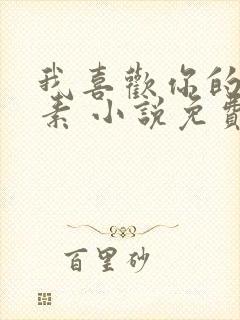 我喜歡你的
素 小說免費
百里砂